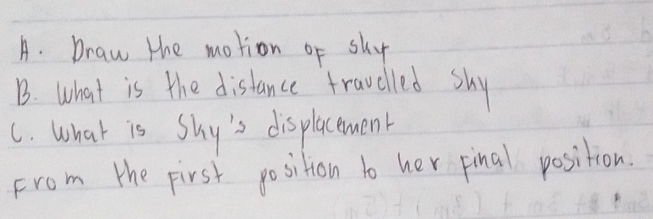 A. Draw the motion of sky
B. What is the distance travelled Sky
C. What is Sky's displacement
From the first position to her final position.